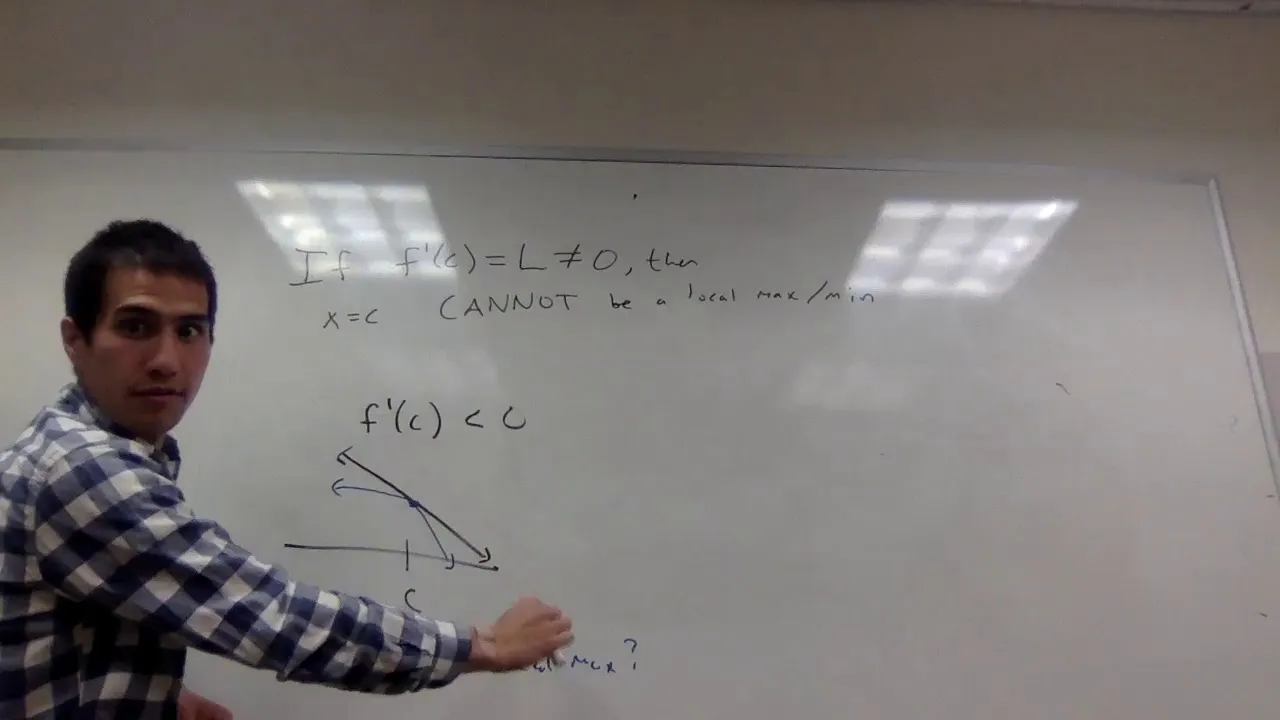 If f'(c) = L ≠ 0, then
x = c CANNOT be a local max/min
f'(c) < 0
c
max?